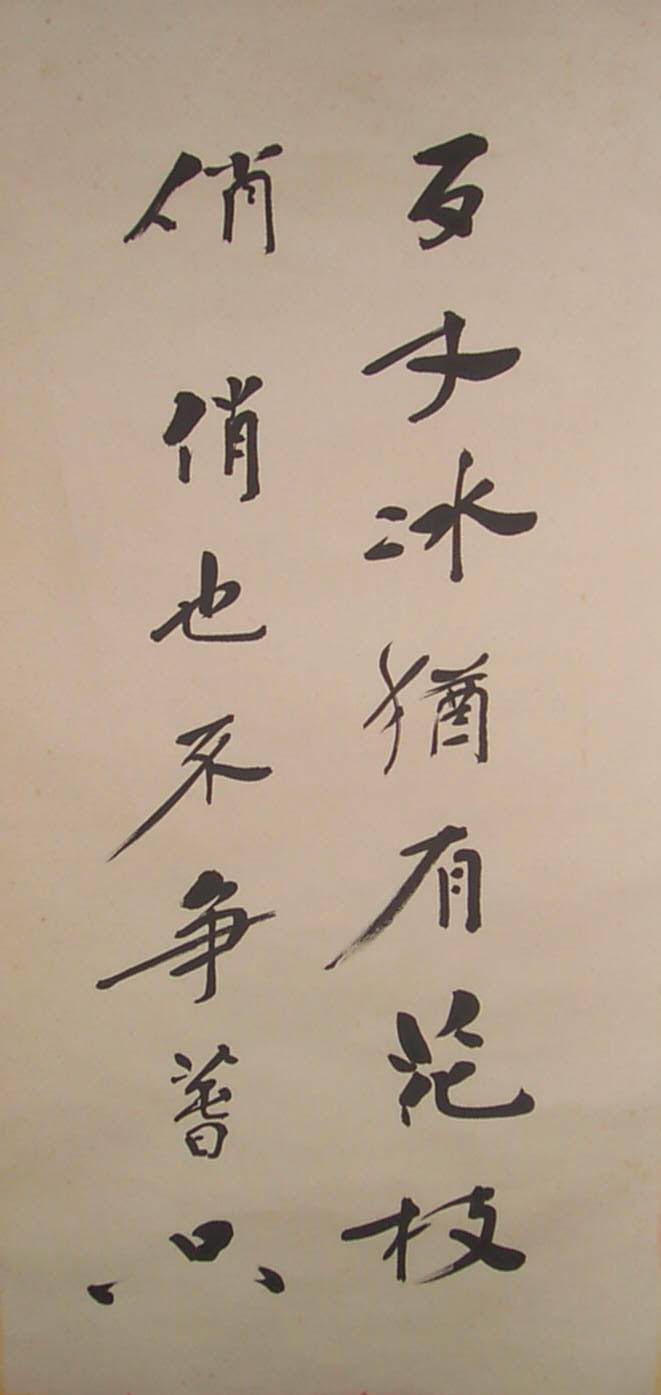 百丈冰猶有花枝
俏俏也不争萅只